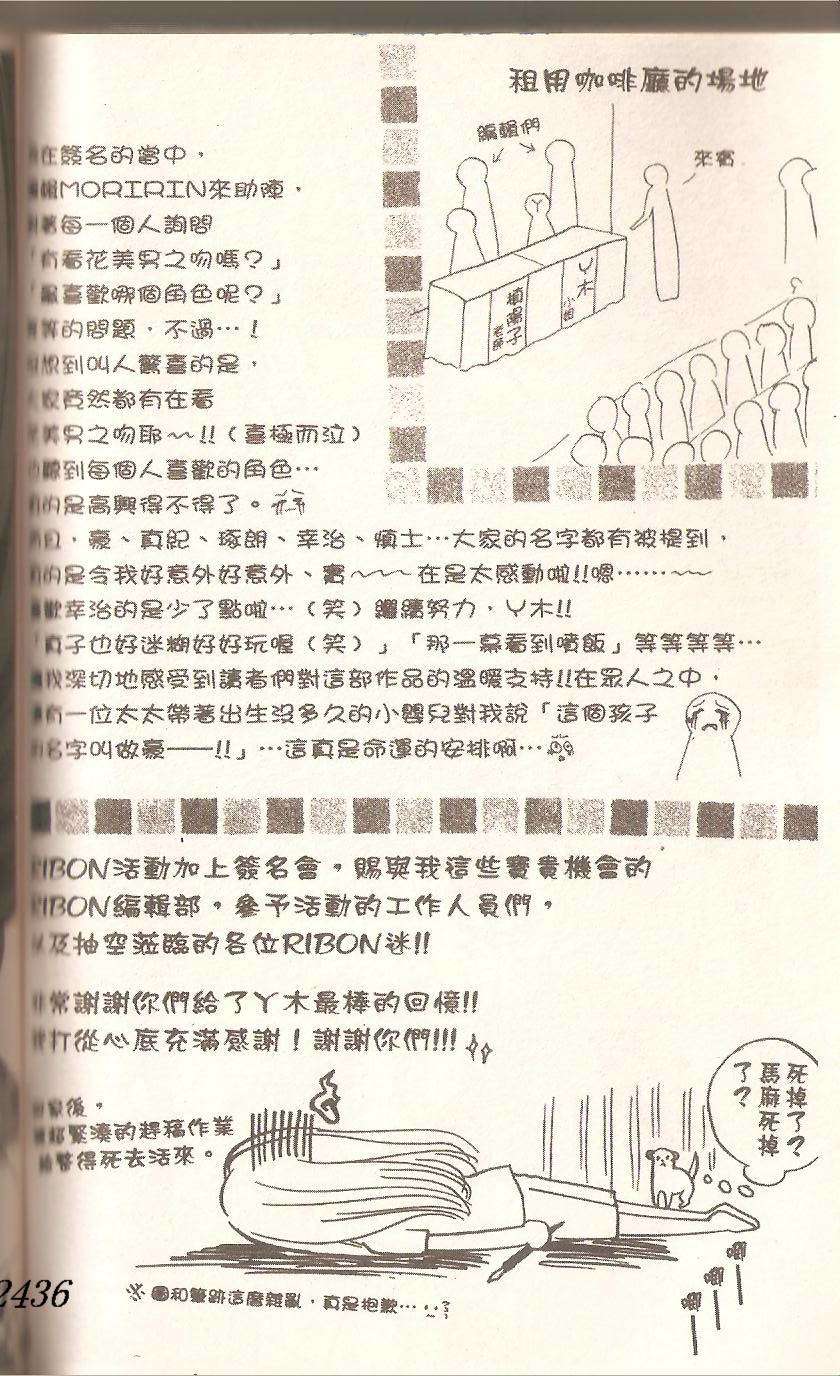 租用咖啡廳的場地
編輯們
來賓
槙陽子
老師
丫木
小姐
在簽名的當中，
MORIRIN來助陣，
著每一個人詢問
「有看花美男之吻嗎？」
「最喜歡哪個角色呢？」
等的問題．不過…！
想到叫人驚喜的是，
家竟然都有在看
美男之吻耶～!!（喜極而泣）
聽到每個人喜歡的角色…
的是高興得不得了。
而且，豪、真紀、琢朗、幸治、慎士…大家的名字都有被提到，
的是令我好意外好意外、實～～～在是太感動啦!!嗯……～～
喜歡幸治的是少了點啦…（笑）繼續努力．丫木!!
「真子也好迷糊好好玩喔（笑）」「那一幕看到噴飯」等等等等…
讓我深切地感受到讀者們對這部作品的溫暖支持!!在眾人之中，
有一位太太帶著出生沒多久的小嬰兒對我說「這個孩子
的名字叫做豪——!!」…這真是命運的安排啊…
RIBON活動加上簽名會，賜與我這些寶貴機會的
RIBON編輯部，參予活動的工作人員們，
以及抽空蒞臨的各位RIBON迷!!
非常謝謝你們給了丫木最棒的回憶!!
我打從心底充滿感謝！謝謝你們!!!
回家後，
緊湊的趕稿作業
得死去活來。
死掉了？
馬麻死掉
了？
※圖和筆跡這麼雜亂．真是抱歉…
2436